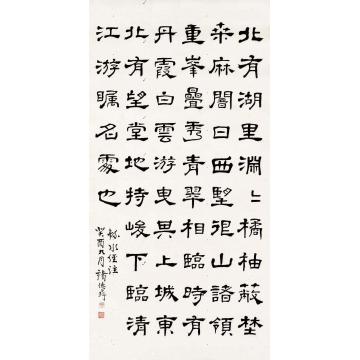 北有湖里淵〻橘柚蔽埜
桒麻闇日西望佷山諸領
重峯疊秀青翠相臨時有
丹霞白雲游曳其上城東
北有望堂地特峻下臨清
江游矚名處也
水經注
癸酉九月褚德彝